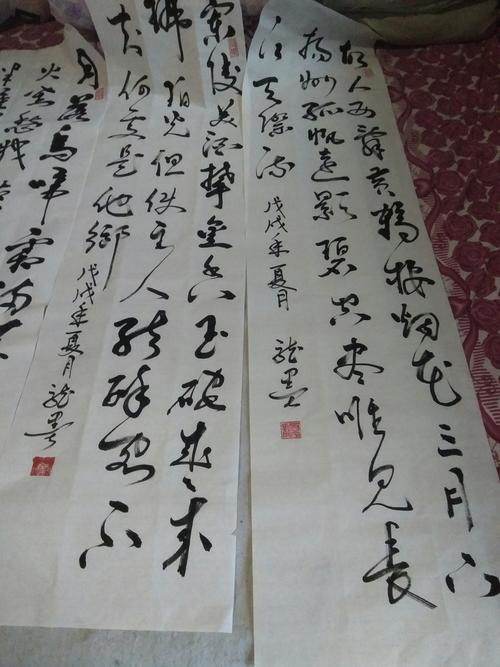 故人西辞黄鹤楼烟花三月下
扬州孤帆远影碧空尽唯见长
江天际流 戊戌年夏月 龙墨
兰陵美酒郁金香玉碗盛来
琥珀光但使主人能醉客不
知何处是他乡 戊戌年夏月 龙墨
月落乌啼霜满天
火对愁眠